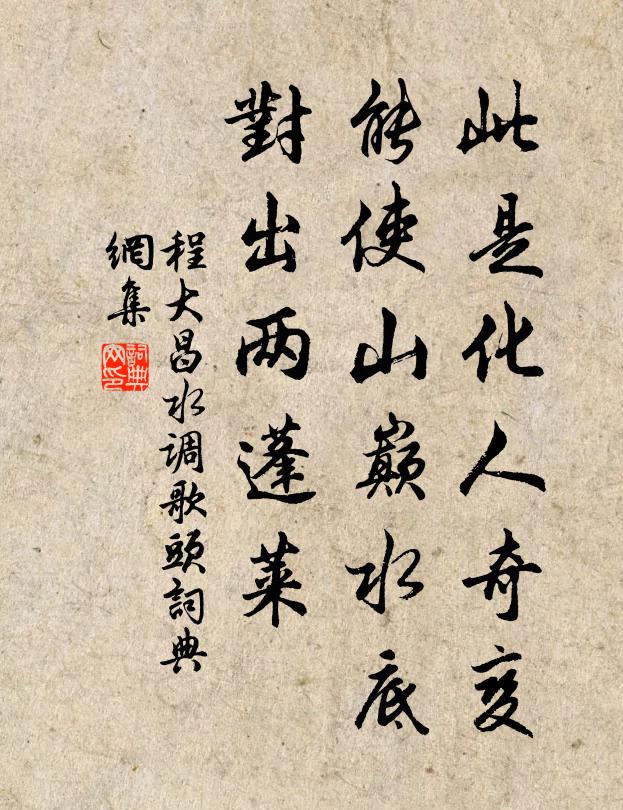 此是化人奇变
能使山巅水底
對出两蓬莱
程大昌水调歌頭詞典
網集
詞典
网印